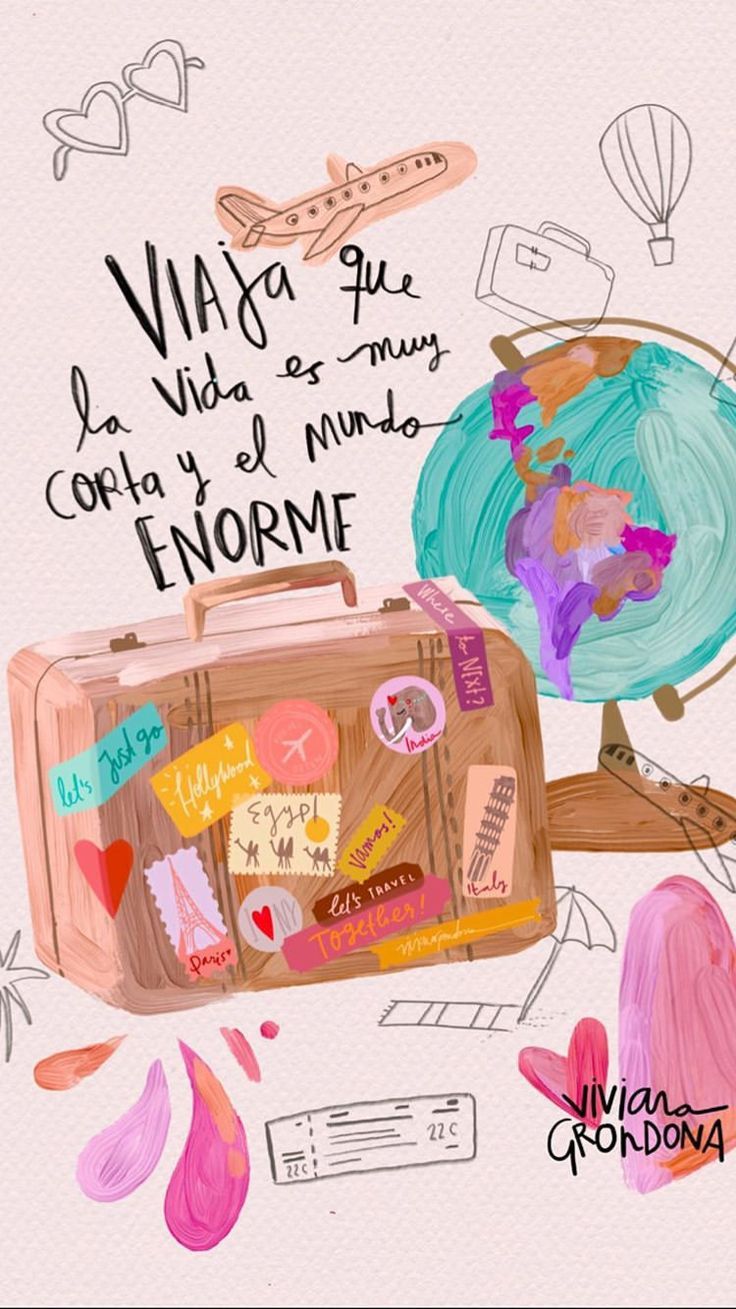 VIAja que
la vida es muy
corta y el mundo
ENORME
Where to Next?
let's Just go
Hollywood
India
EGYPT
Vamos!
Italy
let's TRAVEL
Together!
I NY
Paris
vivianagrondona
22C
22C
viviana
GRONDONA